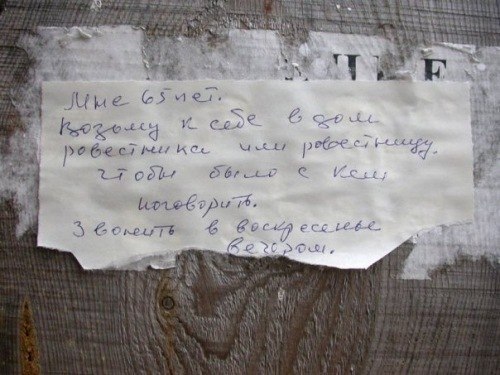 TE
Мне 65 лет.
Возьму к себе в дом
ровестника или ровестницу.
Чтобы было с кем
поговорить.
Звонить в воскресенье
вечером.